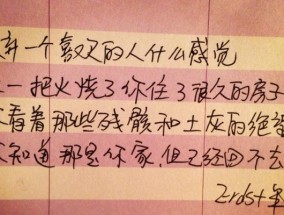 弃一个喜欢的人什么感觉
一把火烧了你住了很久的房子
看着那些残骸和土灰的绝望
知道那是你家,但已经回不去